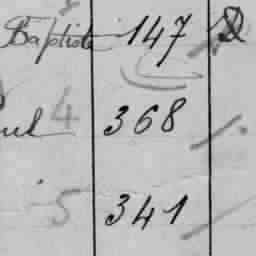 Baptiste 147
4 368
5 341